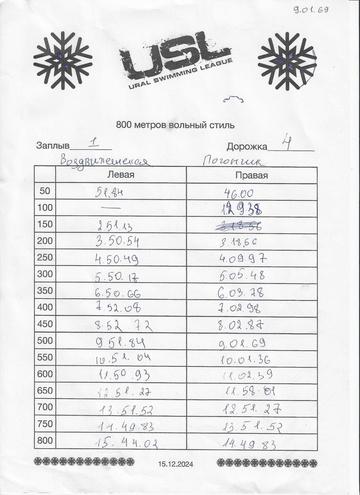 9.01.69
USL
URAL SWIMMING LEAGUE
800 метров вольный стиль
Заплыв 1 Дорожка 4
Воздвиженская
Левая Правая
50 51.84 46.00
100 —
150 2 51.13
200 3.50.54 3.18.56
250 4.50.49 4.09.97
300 5.50.17 5.05.48
350 6.50.66 6.03.28
400 7.52.08 7.02.98
450 8.52 72 8.02.87
500 9.51.84 9.01.69
550 10.51.04 10.01.36
600 11.50.93 11.02.39
650 12.51.27 11.58.01
700 13.51.52 12.51.27
750 14.49.83 13.51.52
800 15.44.02 14.49.83
15.12.2024